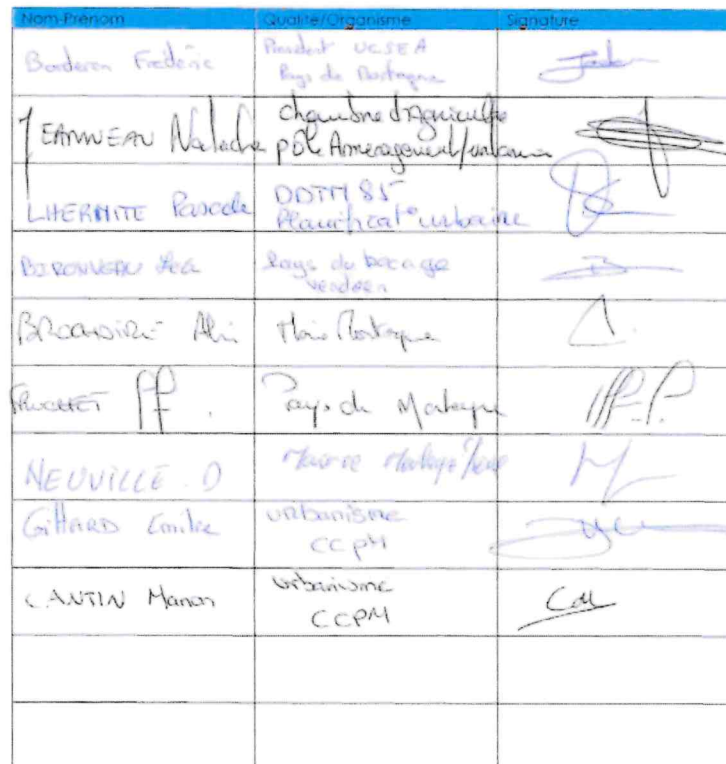 Nom-Prénom Qualité/Organisme Signature
Borderon Frédéric President UCSEA
Pays de Mortagne
JEANNEAU Natacha Chambre d'Agriculture
pôle Aménagement/urbanisme
LHERMITE Pascale DDTM 85
Planificat° urbaine
BIRONNEAU Léa Pays du bocage
vendéen
BROCHOIRE Alain Mortagne
FRUCHET Pays de Mortagne
NEUVILLE D Mairie Mortagne/Sèvre
GIHARD Emilie urbanisme
CCPM
CANTIN Manon urbanisme
CCPM